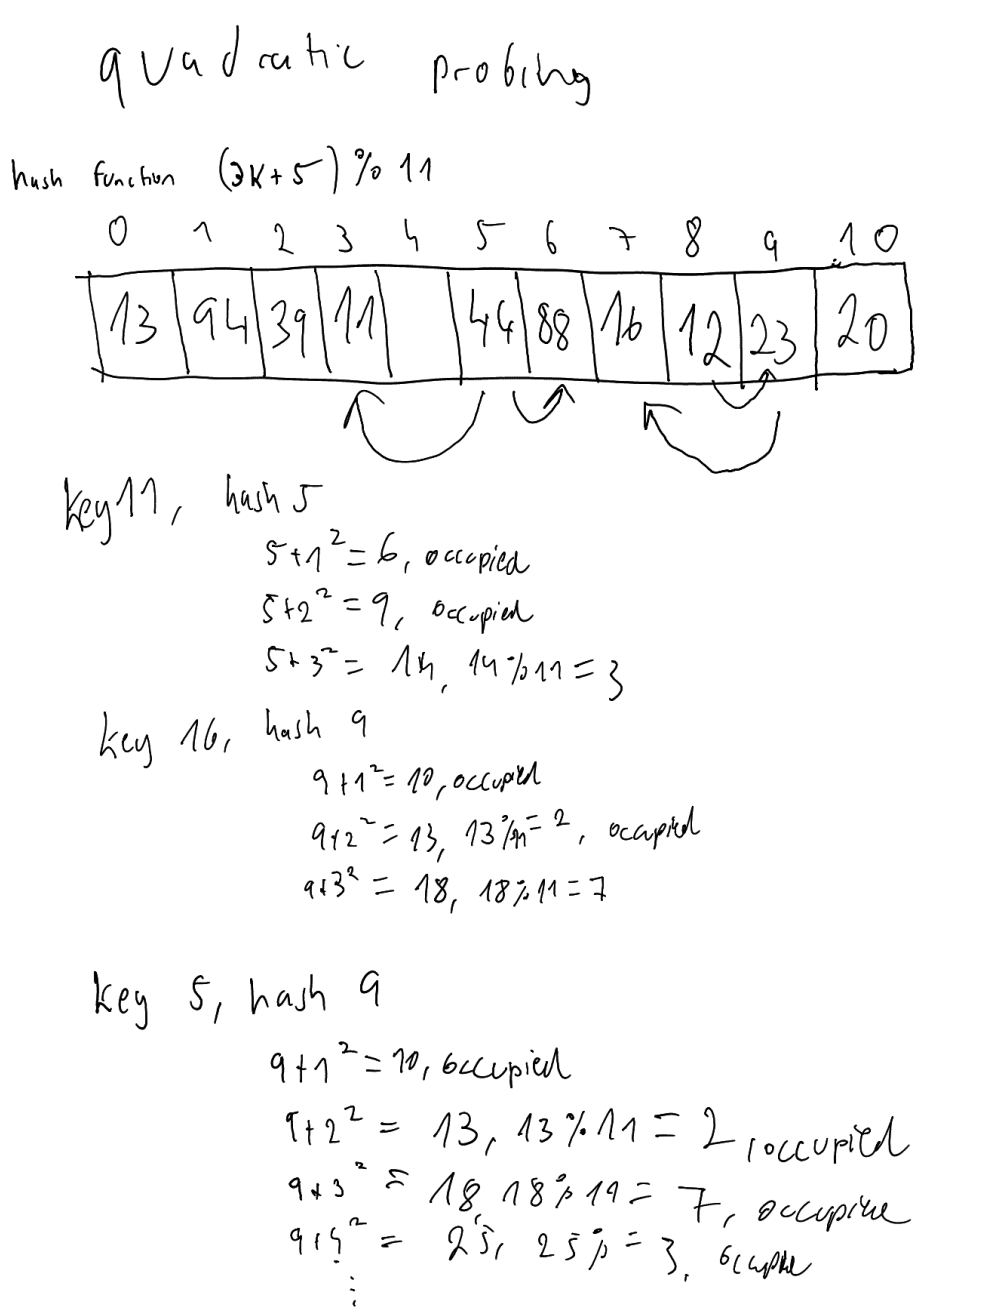 quadratic probing
hash function (3K+5) % 11
0 1 2 3 4 5 6 7 8 9 10
13 94 39 11 44 88 16 12 23 20
key 11, hash 5
5+1²=6, occupied
5+2²=9, occupied
5+3²= 14, 14%11=3
key 16, hash 9
9+1²=10, occupied
9+2²=13, 13%11=2, occupied
9+3² = 18, 18%11=7
key 5, hash 9
9+1²=10, occupied
9+2² = 13, 13%11=2, occupied
9+3² = 18, 18%11=7, occupied
9+4² = 25, 25% =3,
⋮